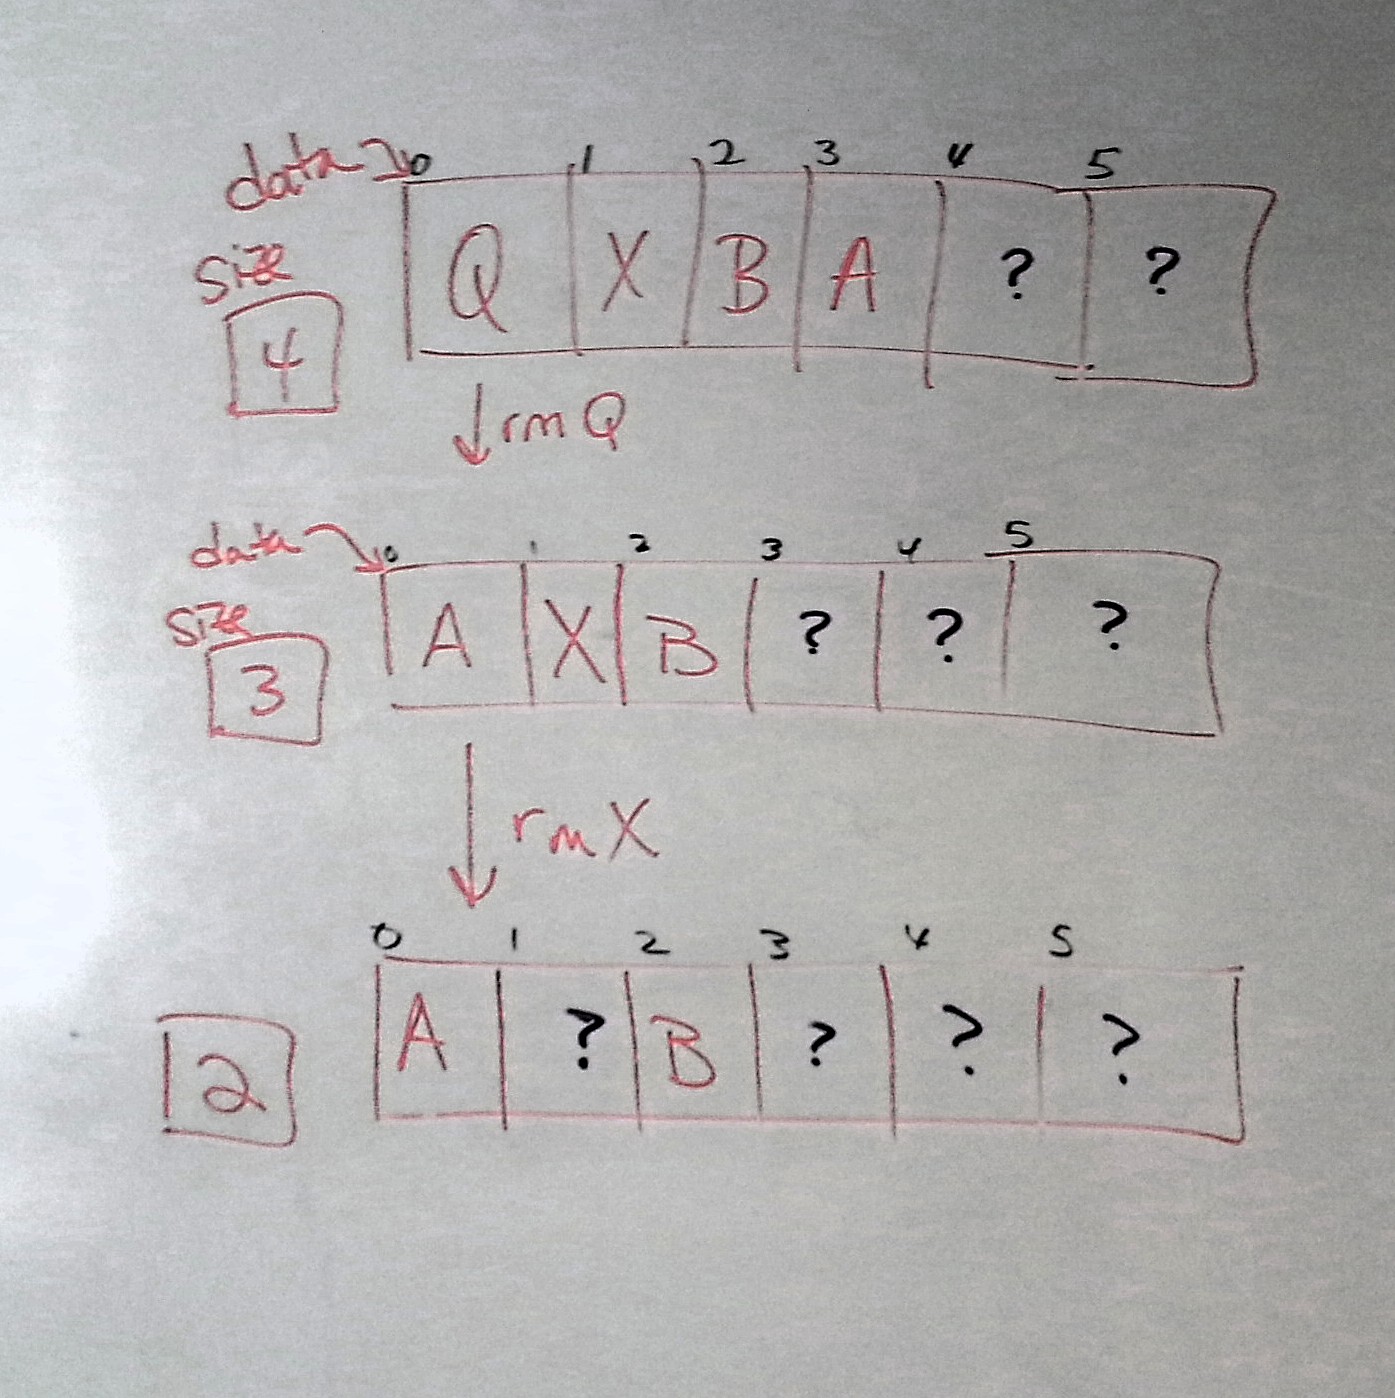 data 0 1 2 3 4 5
size Q X B A ? ?
4
rm Q
data 0 1 2 3 4 5
size A X B ? ? ?
3
rm X
0 1 2 3 4 5
2 A ? B ? ? ?